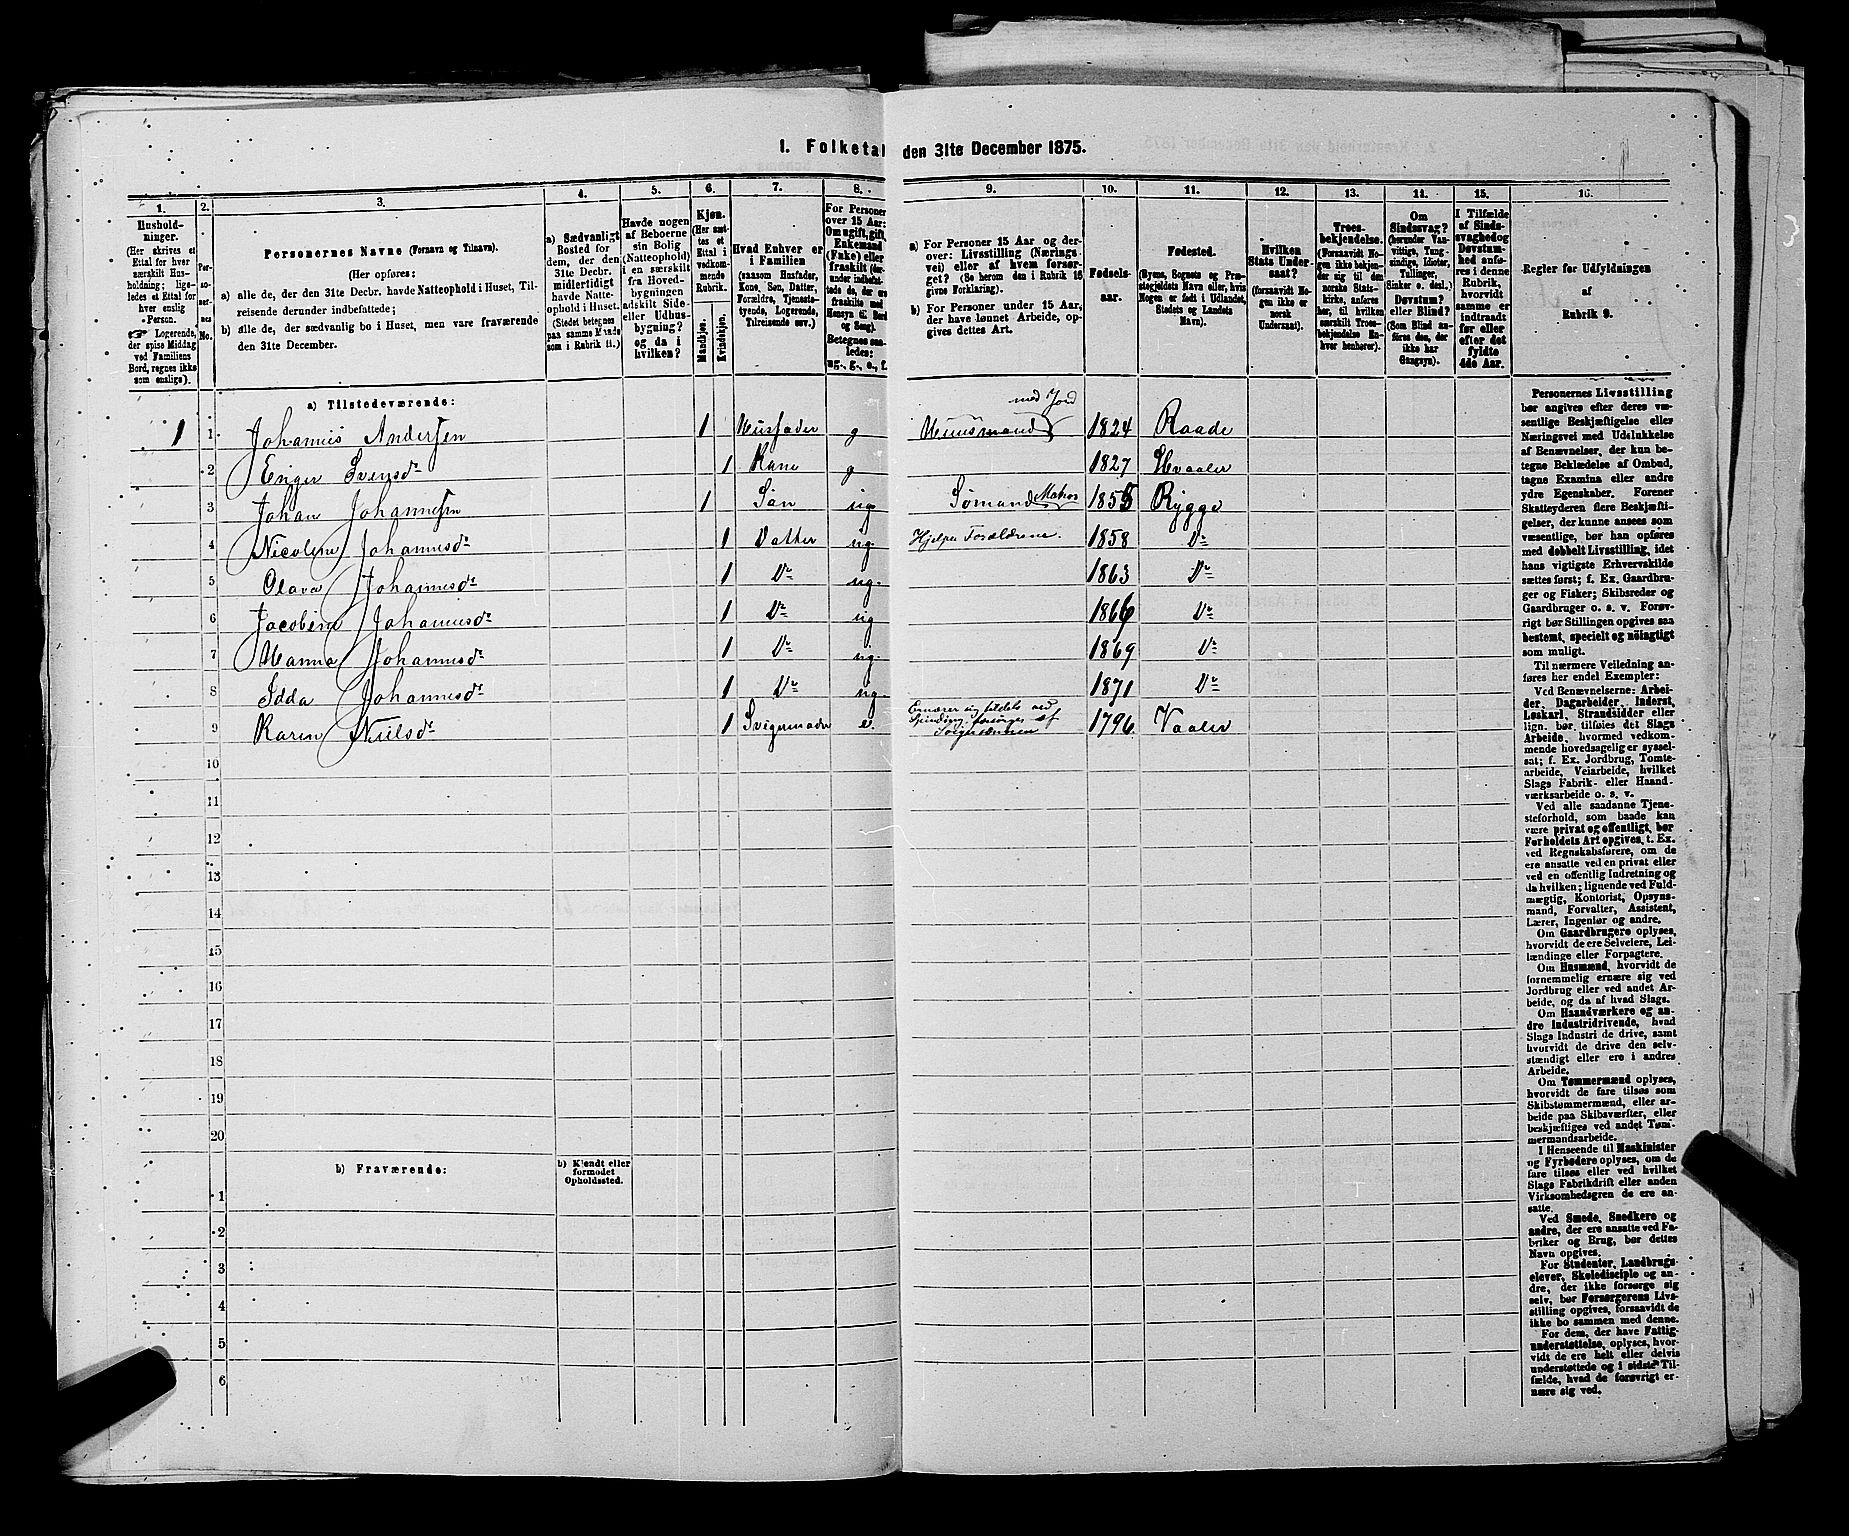 1. Folketal den 31te December 1875.
1.
Hushold-
ninger.
(Her skrives et
Ettal for hver
særskilt Hus-
holdning; lige-
ledes et Ettal for
hver enslig
Person.
☞ Logerende,
der spise Middag
ved Familiens
Bord, regnes ikke
som enslige).
2.
Per-
so-
ner-
nes
No.
3.
Personernes Navne (Fornavn og Tilnavn).
(Her opføres:
a) alle de, der den 31te Decbr. havde Natteophold i Huset, Til-
reisende derunder indbefattede;
b) alle de, der sædvanlig bo i Huset, men vare fraværende
den 31te December.
4.
a) Sædvanligt
Bosted for
dem, der den
31te Decbr.
midlertidigt
havde Natte-
ophold i Huset.
(Stedet betegnes
paa samme Maade
som i Rubrik 11.)
5.
Havde nogen
af Beboerne
sin Bolig
(Natteophold)
i en særskilt
fra Hoved-
bygningen
adskilt Side-
eller Udhus-
bygning?
og da i
hvilken?
6.
Kjøn.
(Her sæt-
tes et
Ettal i
vedkom-
mende
Rubrik.
Mandkjøn.
Kvindekjøn.
7.
Hvad Enhver er
i Familien
(saasom Husfader,
Kone, Søn, Datter,
Forældre, Tjeneste-
tyende, Logerende,
Tilreisende osv.)
8.
For Personer
over 15 Aar:
Om ugift, gift,
Enkemand
(Enke) eller
fraskilt
Betegnes saa-
ledes:
ug., g., e., f.
9.
a) For Personer 15 Aar og der-
over: Livsstilling (Nærings-
vei) eller af hvem forsør-
get? (Se herom den i Rubrik 16
givne Forklaring).
b) For Personer under 15 Aar,
der have lønnet Arbeide, op-
gives dettes Art.
10.
Fødsels-
aar.
11.
Fødested.
(Byens, Sognets og Præ-
stegjeldets Navn eller, hvis
Nogen er født i Udlandet,
Stedets og Landets
Navn).
12.
Hvilken
Stats Under-
saat?
(forsaavidt No-
gen ikke er
norsk
Undersaat).
13.
Troes-
bekjendelse.
(Forsaavidt No-
gen ikke bekjen-
der sig til den
norske Stats-
kirke, anføres
her, til hvilken
særskilt Troes-
bekjendelse En-
hver henhører).
14.
Om
Sindssvag?
(herunder Van-
vittige, Tung-
sindige, Idioter,
Tullinger,
Sinker o. desl.)
Døvstum?
eller Blind?
(Som Blind an-
føres den, der
ikke har
Gangsyn).
15.
I Tilfælde
af Sinds-
svaghed og
Døvstum-
hed anfø-
res i denne
Rubrik,
hvorvidt
samme er
indtraadt
før eller
efter det
fyldte
4de Aar.
16.
Regler for Udfyldningen
af
Rubrik 9.
a) Tilstedeværende:
med Jord
1 1 Johannes Andersen 1 Husfader g Huusmand 1824 Raade
2 Enger Svensdr 1 Kone g 1827 Hvaaler
3 Johan Johannesen 1 Søn ug Sømand Matros 1855 Rygge
4 Nicoline Johannesdr 1 Datter ug. Hjelper Forældrene. 1858 Do
5 Olava Johannesdr 1 Do ug. 1863 Do
6 Jacobine Johannesdr 1 Do ug 1866 Do
7 Hanna Johannesdr 1 Do ug. 1869 Do
8 Idda Johannesdr 1 Do ug. 1871 Do
9 Karen Nielsdr 1 Svigermoder e. Ernærer sig tildels ved
Spinding, forsørges af
Svigersønnen 1796 Vaaler
10
11
12
13
14
15
16
17
18
19
20
b) Fraværende:
b) Kjendt eller
formodet
Opholdssted.
1
2
3
4
5
6
Personernes Livsstilling
bør angives efter deres væ-
sentlige Beskjæftigelse eller
Næringsvei med Udelukkelse
af Benævnelser, der kun be-
tegne Beklædelse af Ombud,
tagne Examina eller andre
ydre Egenskaber. Forener
Skatteyderen flere Beskjæfti-
gelser, der kunne ansees som
væsentlige, bør han opføres
med dobbelt Livsstilling, idet
hans vigtigste Erhvervskilde
sættes først; f. Ex. Gaardbru-
ger og Fisker; Skibsreder og
Gaardbruger o. s. v. Forøv-
rigt bør Stillingen opgives saa
bestemt, specielt og nöiagtigt
som muligt.
Til nærmere Veiledning an-
føres her endel Exempler:
Ved Benævnelserne: Arbei-
der, Dagarbeider, Inderst,
Løskarl, Strandsidder eller
lign. bør tilføies det Slags
Arbeide, hvormed vedkom-
mende hovedsagelig er syssel-
sat; f. Ex. Jordbrug, Tomte-
arbeide, Veiarbeide, hvilket
Slags Fabrik- eller Haand-
værksarbeide o. s. v.
Ved alle saadanne Tjene-
steforhold, som baade kan
være privat og offentligt, bør
Forholdets Art opgives, t. Ex.
ved Regnskabsførere, om de
ere ansatte ved en privat eller
ved en offentlig Indretning og
da hvilken; lignende ved Fuld-
mægtig, Kontorist, Opsyns-
mand, Forvalter, Assistent,
Lærer, Ingeniør og andre.
Om Gaardbrugere oplyses,
hvorvidt de ere Selveiere, Lei-
lændinge eller Forpagtere.
Om Husmænd, hvorvidt de
fornemmelig ernære sig ved
Jordbrug eller ved andet Ar-
beide, og da af hvad Slags.
Om Haandværkere og an-
dre Industridrivende, hvad
Slags Industri de drive, samt
hvorvidt de drive den selv-
stændigt eller ere i andres
Arbeide.
Om Tømmermænd oplyses,
hvorvidt de fare tilsøs som
Skibstømmermænd, eller ar-
beide paa Skibsværfter, eller
beskjæftiges ved andet Tøm-
mermandsarbeide.
I Henseende til Maskinister
og Fyrbødere oplyses, om de
fare tilsøs eller ved hvilket
Slags Fabrikdrift eller anden
Virksomhedsgren de ere an-
satte.
Ved Smede, Snedkere og
andre, der ere ansatte ved Fa-
briker og Brug, bør dettes
Navn opgives.
For Studenter, Landbrugs-
elever, Skoledisciple og an-
dre, der ikke forsørge sig
selv, bør Forsørgerens Livs-
stilling opgives, forsaavidt de
ikke bo sammen med denne.
For dem, der have Fattig-
understøttelse, oplyses, hvor-
vidt de ere helt eller delvis
understøttede og i sidste Til-
fælde, hvad de forøvrigt er-
nære sig ved.